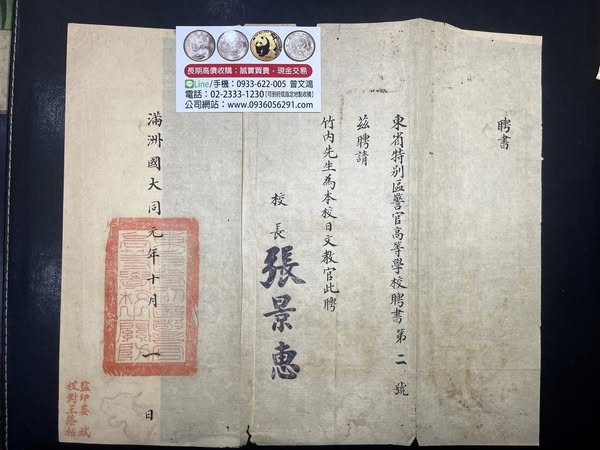 聘書
東省特別區警官高等學校聘書第二號
茲聘請
竹内先生為本校日文教官此聘
校長張景惠
滿洲國大同元年十月一日
監印婁斌
校對王蔭栢
長期高價收購：誠實買賣‧現金交易
Line/手機：0933-622-005 曾文鴻
電話：02-2333-1230【可到府或指定地點收購】
公司網站：www.0936056291.com